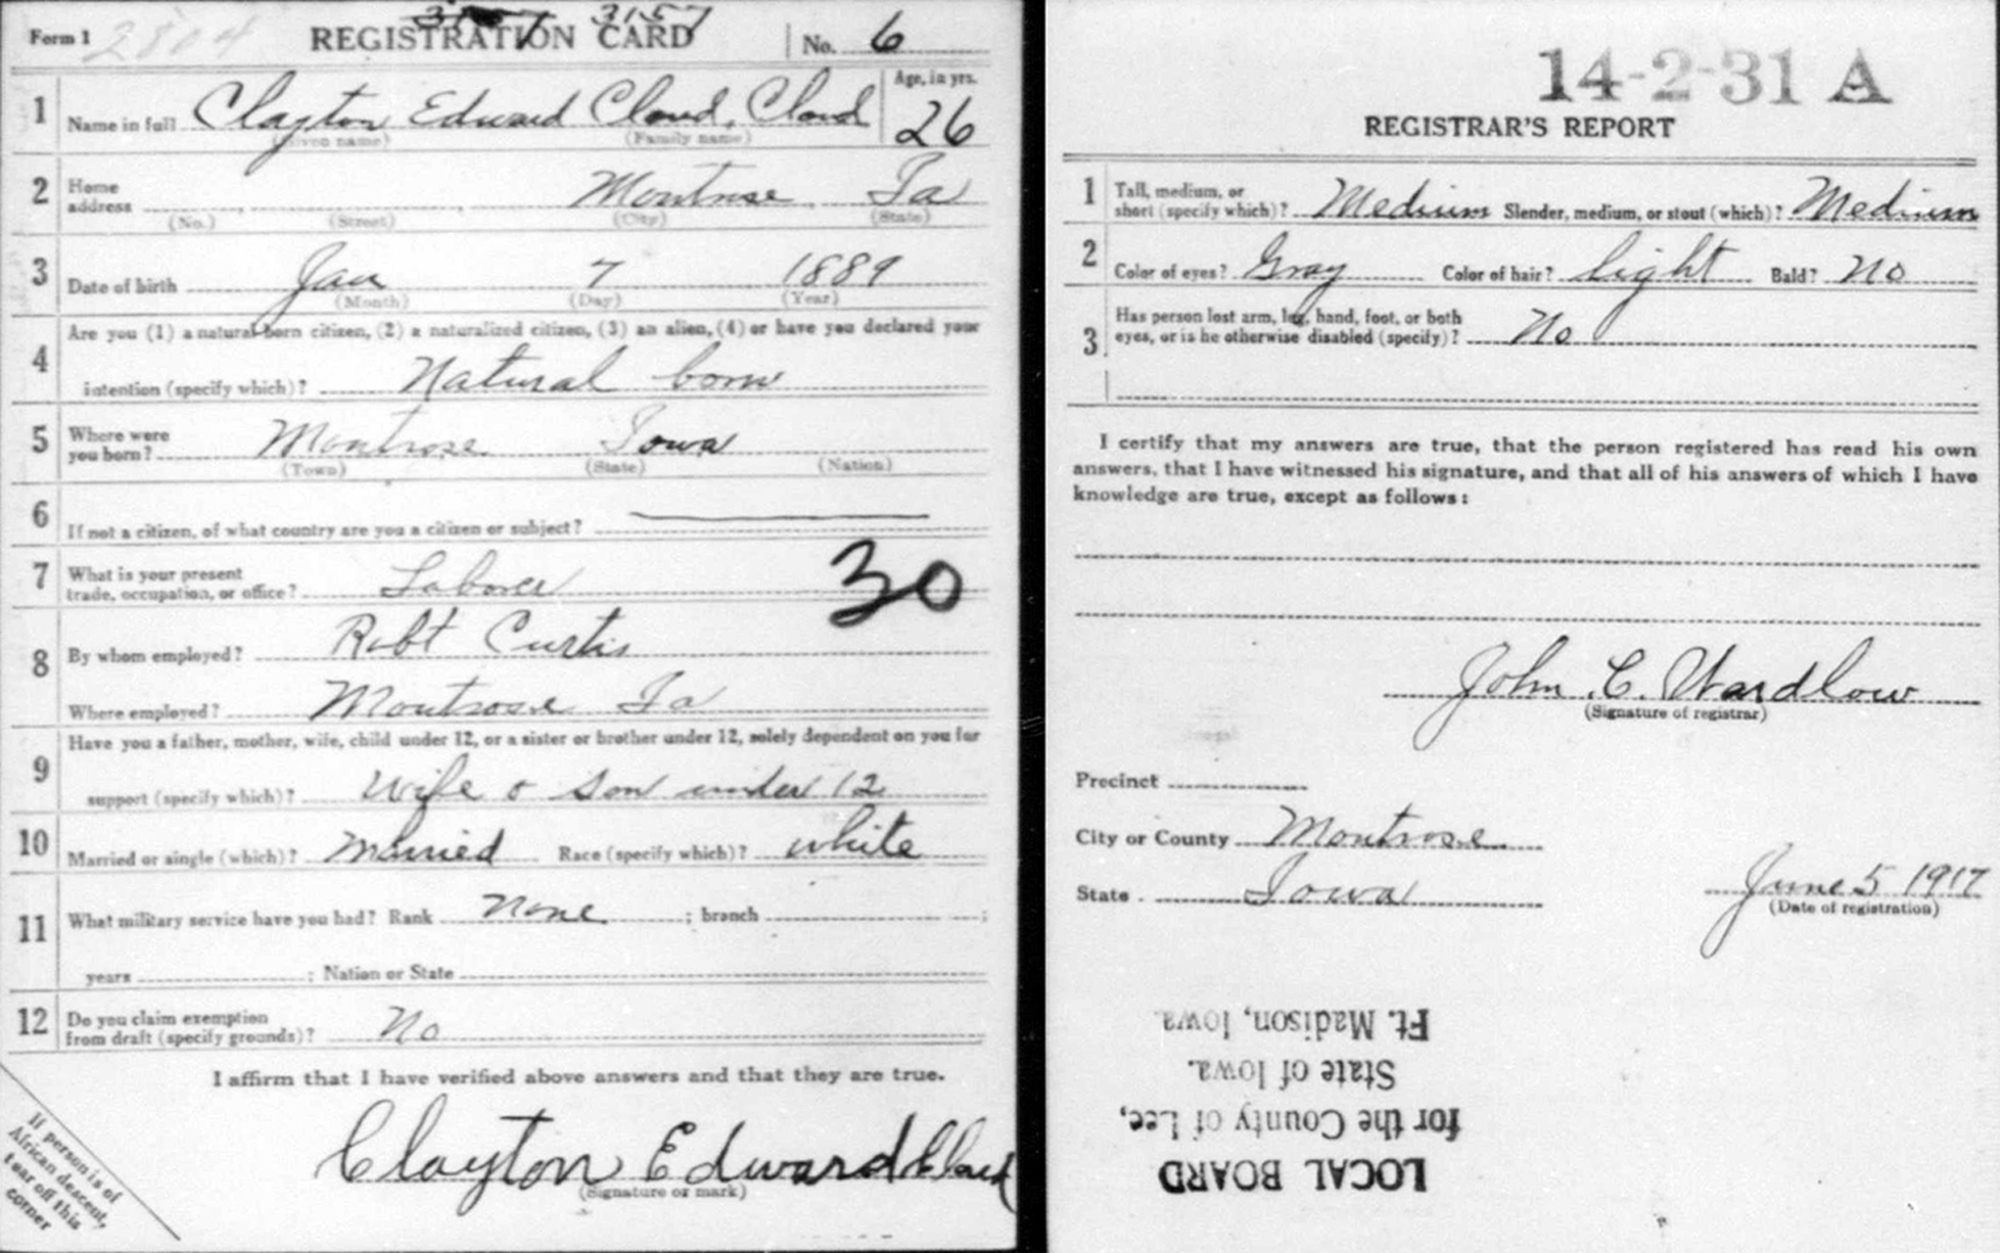 Form 1 2804 REGISTRATION CARD 3157 No. 6
1 Name in full Clayton Edward Cloud, Cloud Age, in yrs. 26
(Given name) (Family name)
2 Home address Montrose Ia
(No.) (Street) (City) (State)
3 Date of birth Jan 7 1889
(Month) (Day) (Year)
4 Are you (1) a natural born citizen, (2) a naturalized citizen, (3) an alien, (4) or have you declared your
intention (specify which)? Natural born
5 Where were you born? Montrose Iowa
(Town) (State) (Nation)
6 If not a citizen, of what country are you a citizen or subject?
7 What is your present trade, occupation, or office? Laborer 30
8 By whom employed? Robt Curtis
Where employed? Montrose Ia
9 Have you a father, mother, wife, child under 12, or a sister or brother under 12, solely dependent on you for
support (specify which)? Wife & son under 12
10 Married or single (which)? Married Race (specify which)? white
11 What military service have you had? Rank None ; branch ;
years ; Nation or State
12 Do you claim exemption from draft (specify grounds)? No
I affirm that I have verified above answers and that they are true.
Clayton Edward Cloud
(Signature or mark)
If person is of
African descent,
tear off this
corner
14-2-31 A
REGISTRAR'S REPORT
1 Tall, medium, or short (specify which)? Medium Slender, medium, or stout (which)? Medium
2 Color of eyes? Gray Color of hair? Light Bald? No
3 Has person lost arm, leg, hand, foot, or both
eyes, or is he otherwise disabled (specify)? No
I certify that my answers are true, that the person registered has read his own
answers, that I have witnessed his signature, and that all of his answers of which I have
knowledge are true, except as follows:
John C. Wardlow
(Signature of registrar)
Precinct
City or County Montrose
State Iowa June 5 1917
(Date of registration)
LOCAL BOARD
for the County of Lee,
State of Iowa.
Ft. Madison, Iowa.